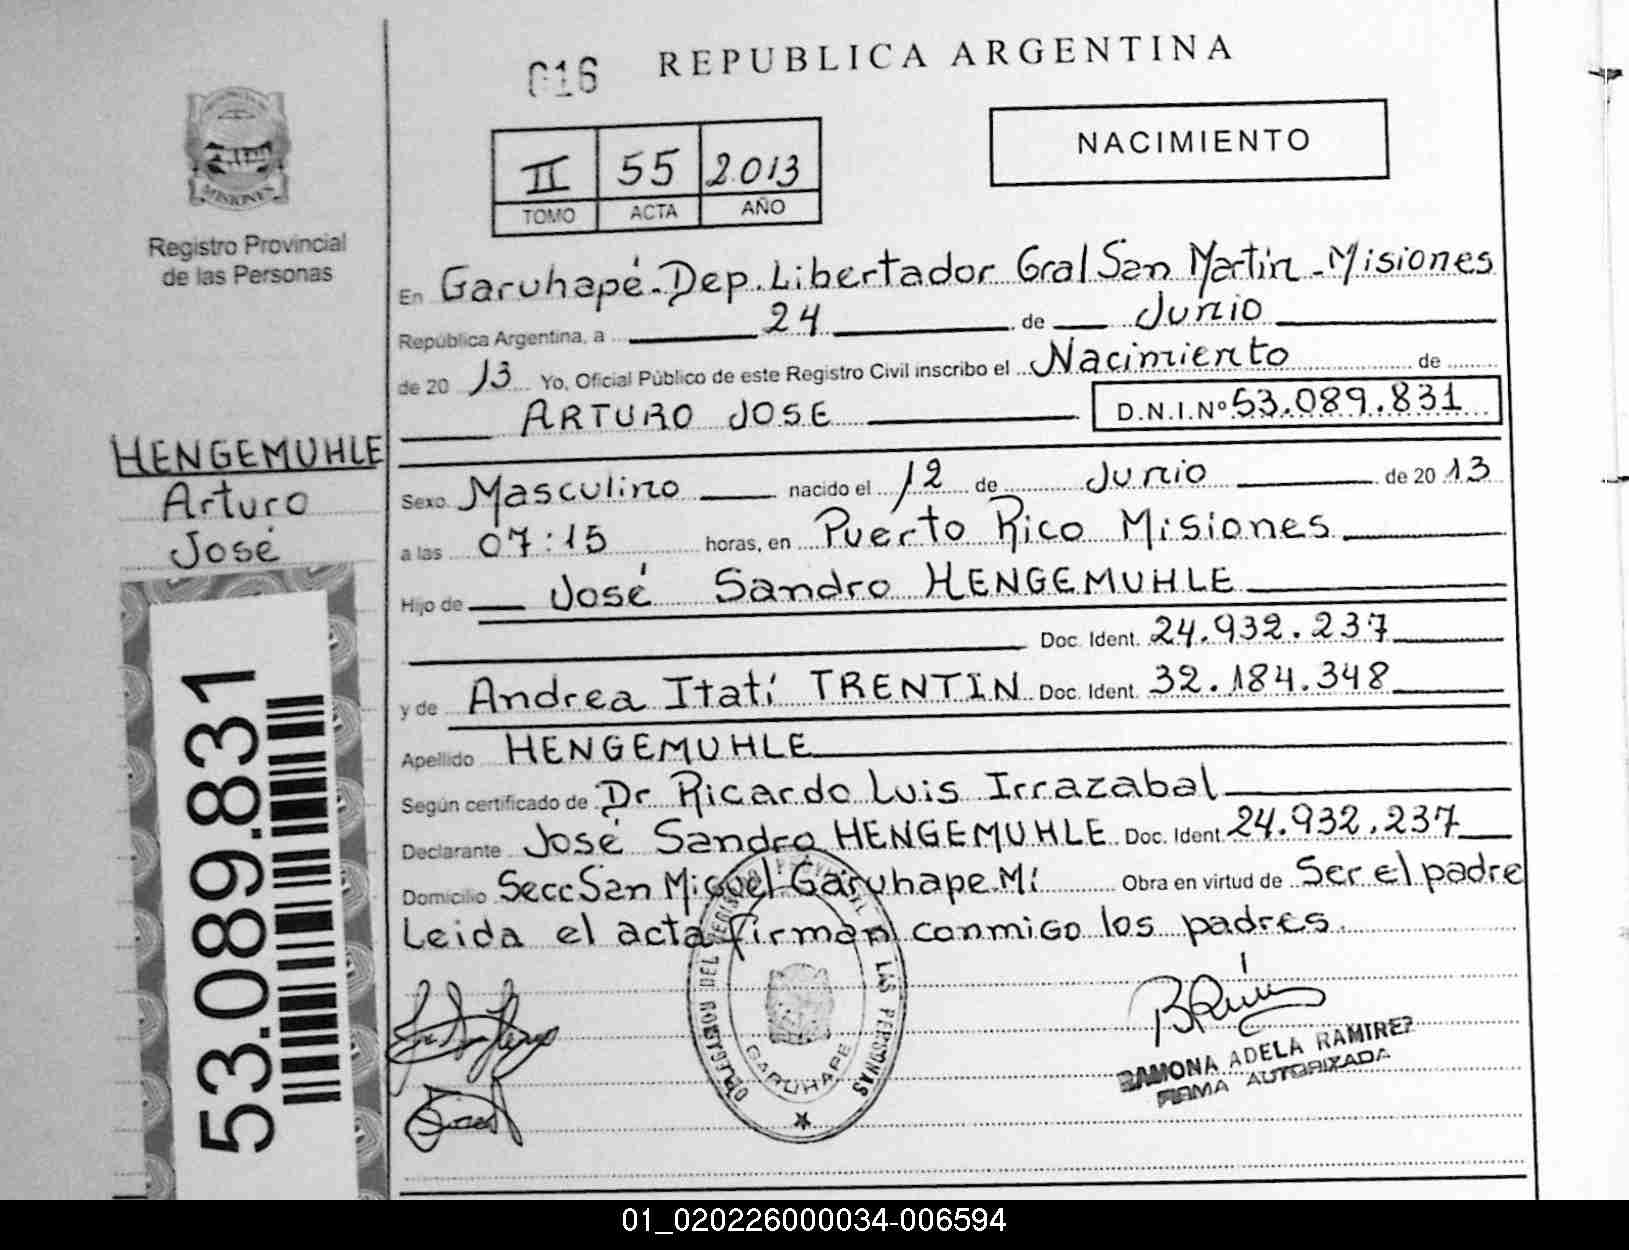 016 REPUBLICA ARGENTINA
NACIMIENTO
II 55 2013
TOMO ACTA AÑO
MISIONES
Registro Provincial
de las Personas
En Garuhapé-Dep. Libertador Gral San Martin-Misiones
República Argentina, a 24 de Junio
de 20 13 Yo, Oficial Público de este Registro Civil inscribo el Nacimiento de
ARTURO JOSE D.N.I.Nº 53.089.831
HENGEMUHLE
Arturo
José
Sexo Masculino nacido el 12 de Junio de 20 13
a las 07:15 horas, en Puerto Rico Misiones
Hijo de José Sandro HENGEMUHLE
Doc. Ident. 24.932.237
y de Andrea Itatí TRENTIN Doc. Ident. 32.184.348
Apellido HENGEMUHLE
Según certificado de Dr Ricardo Luis Irrazabal
Declarante José Sandro HENGEMUHLE Doc. Ident. 24.932.237
Domicilio Secc San Miguel Garuhape Mi Obra en virtud de Ser el padre
Leida el acta firman conmigo los padres
53.089.831
LAS PERSONAS
GARUHAPE
RAMONA ADELA RAMIREZ
FIRMA AUTORIZADA
01_020226000034-006594